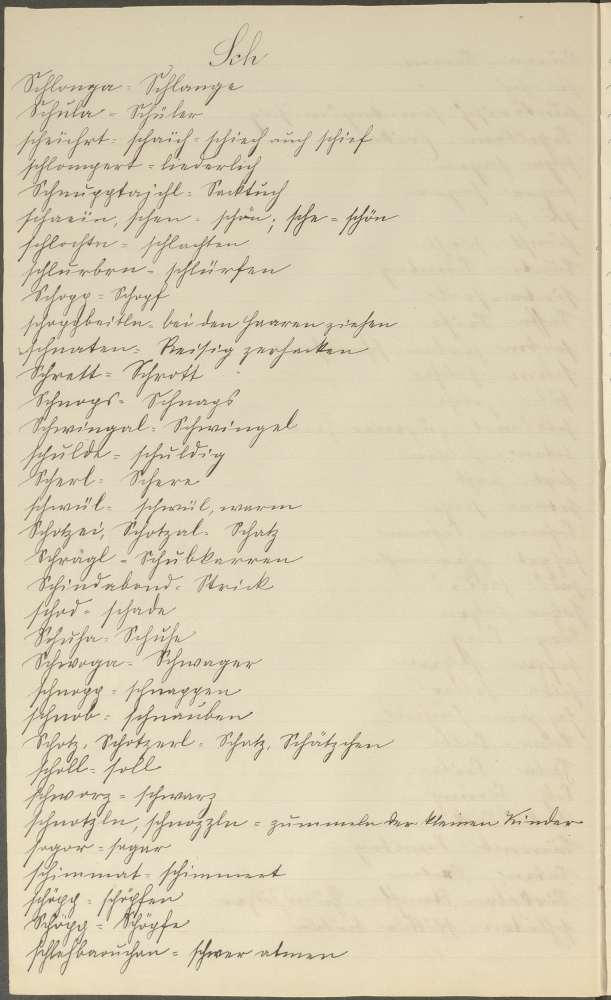 Sch
Schlonga = Schlange
Schula = Schüler
scheichrt = schaich = schiech auch schief
schlompert = liederlich
Schnupptajchl = Sacktuch
schaein, schen = schön; sche = schön
schlochtn = schlachten
schlurbrn = schlürfen
Schopp = Schopf
schoppbeitln = bei den Haaren ziehen
schnaten = Reisig zerhacken
Schrett = Schrott
Schnops = Schnaps
Schwingal = Schwingel
schulde = schuldig
Scherl = Schere
schwül = schwül, warm
Schotzei, Schotzal = Schatz
Schrägl = Schubkarren
Schindabond = Strick
schod = schade
Schuha = Schuhe
Schwoga = Schwager
schnopp = schnappen
schnob = schnauben
Schotz, Schotzerl = Schatz, Schätzchen
scholl = soll
schworz = schwarz
schnotzln, schnozzln = zummeln der kleinen Kinder
sogor = sogar
schimmat = schimmert
schöpp = schöpfen
Schöpp = Schöpfe
schlehbaruchan = schwer atmen